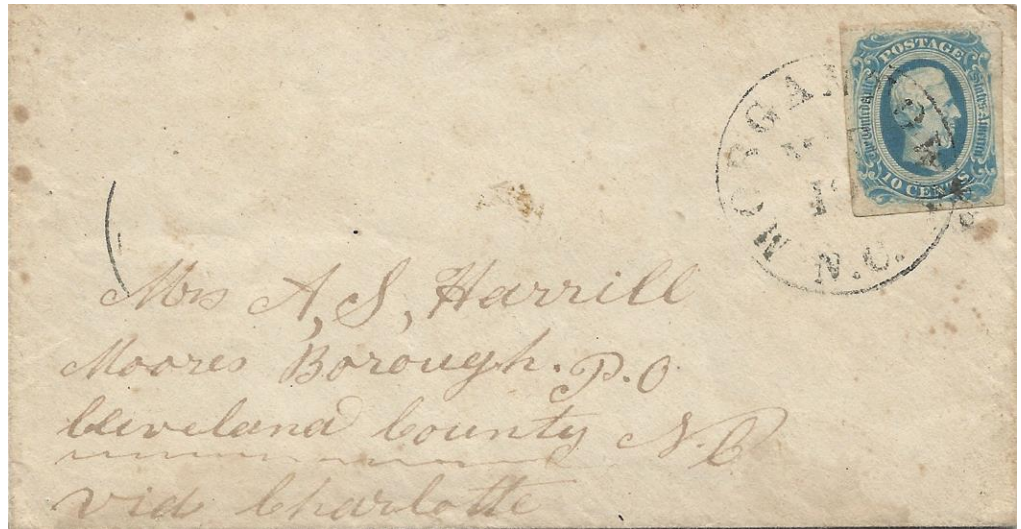 POSTAGE
The Confederate States America
10 CENTS
MORGANTON
N.C.
Mrs A, S, Harrill
Moores Borough. P.O
Cleveland County N.C
via Charlotte